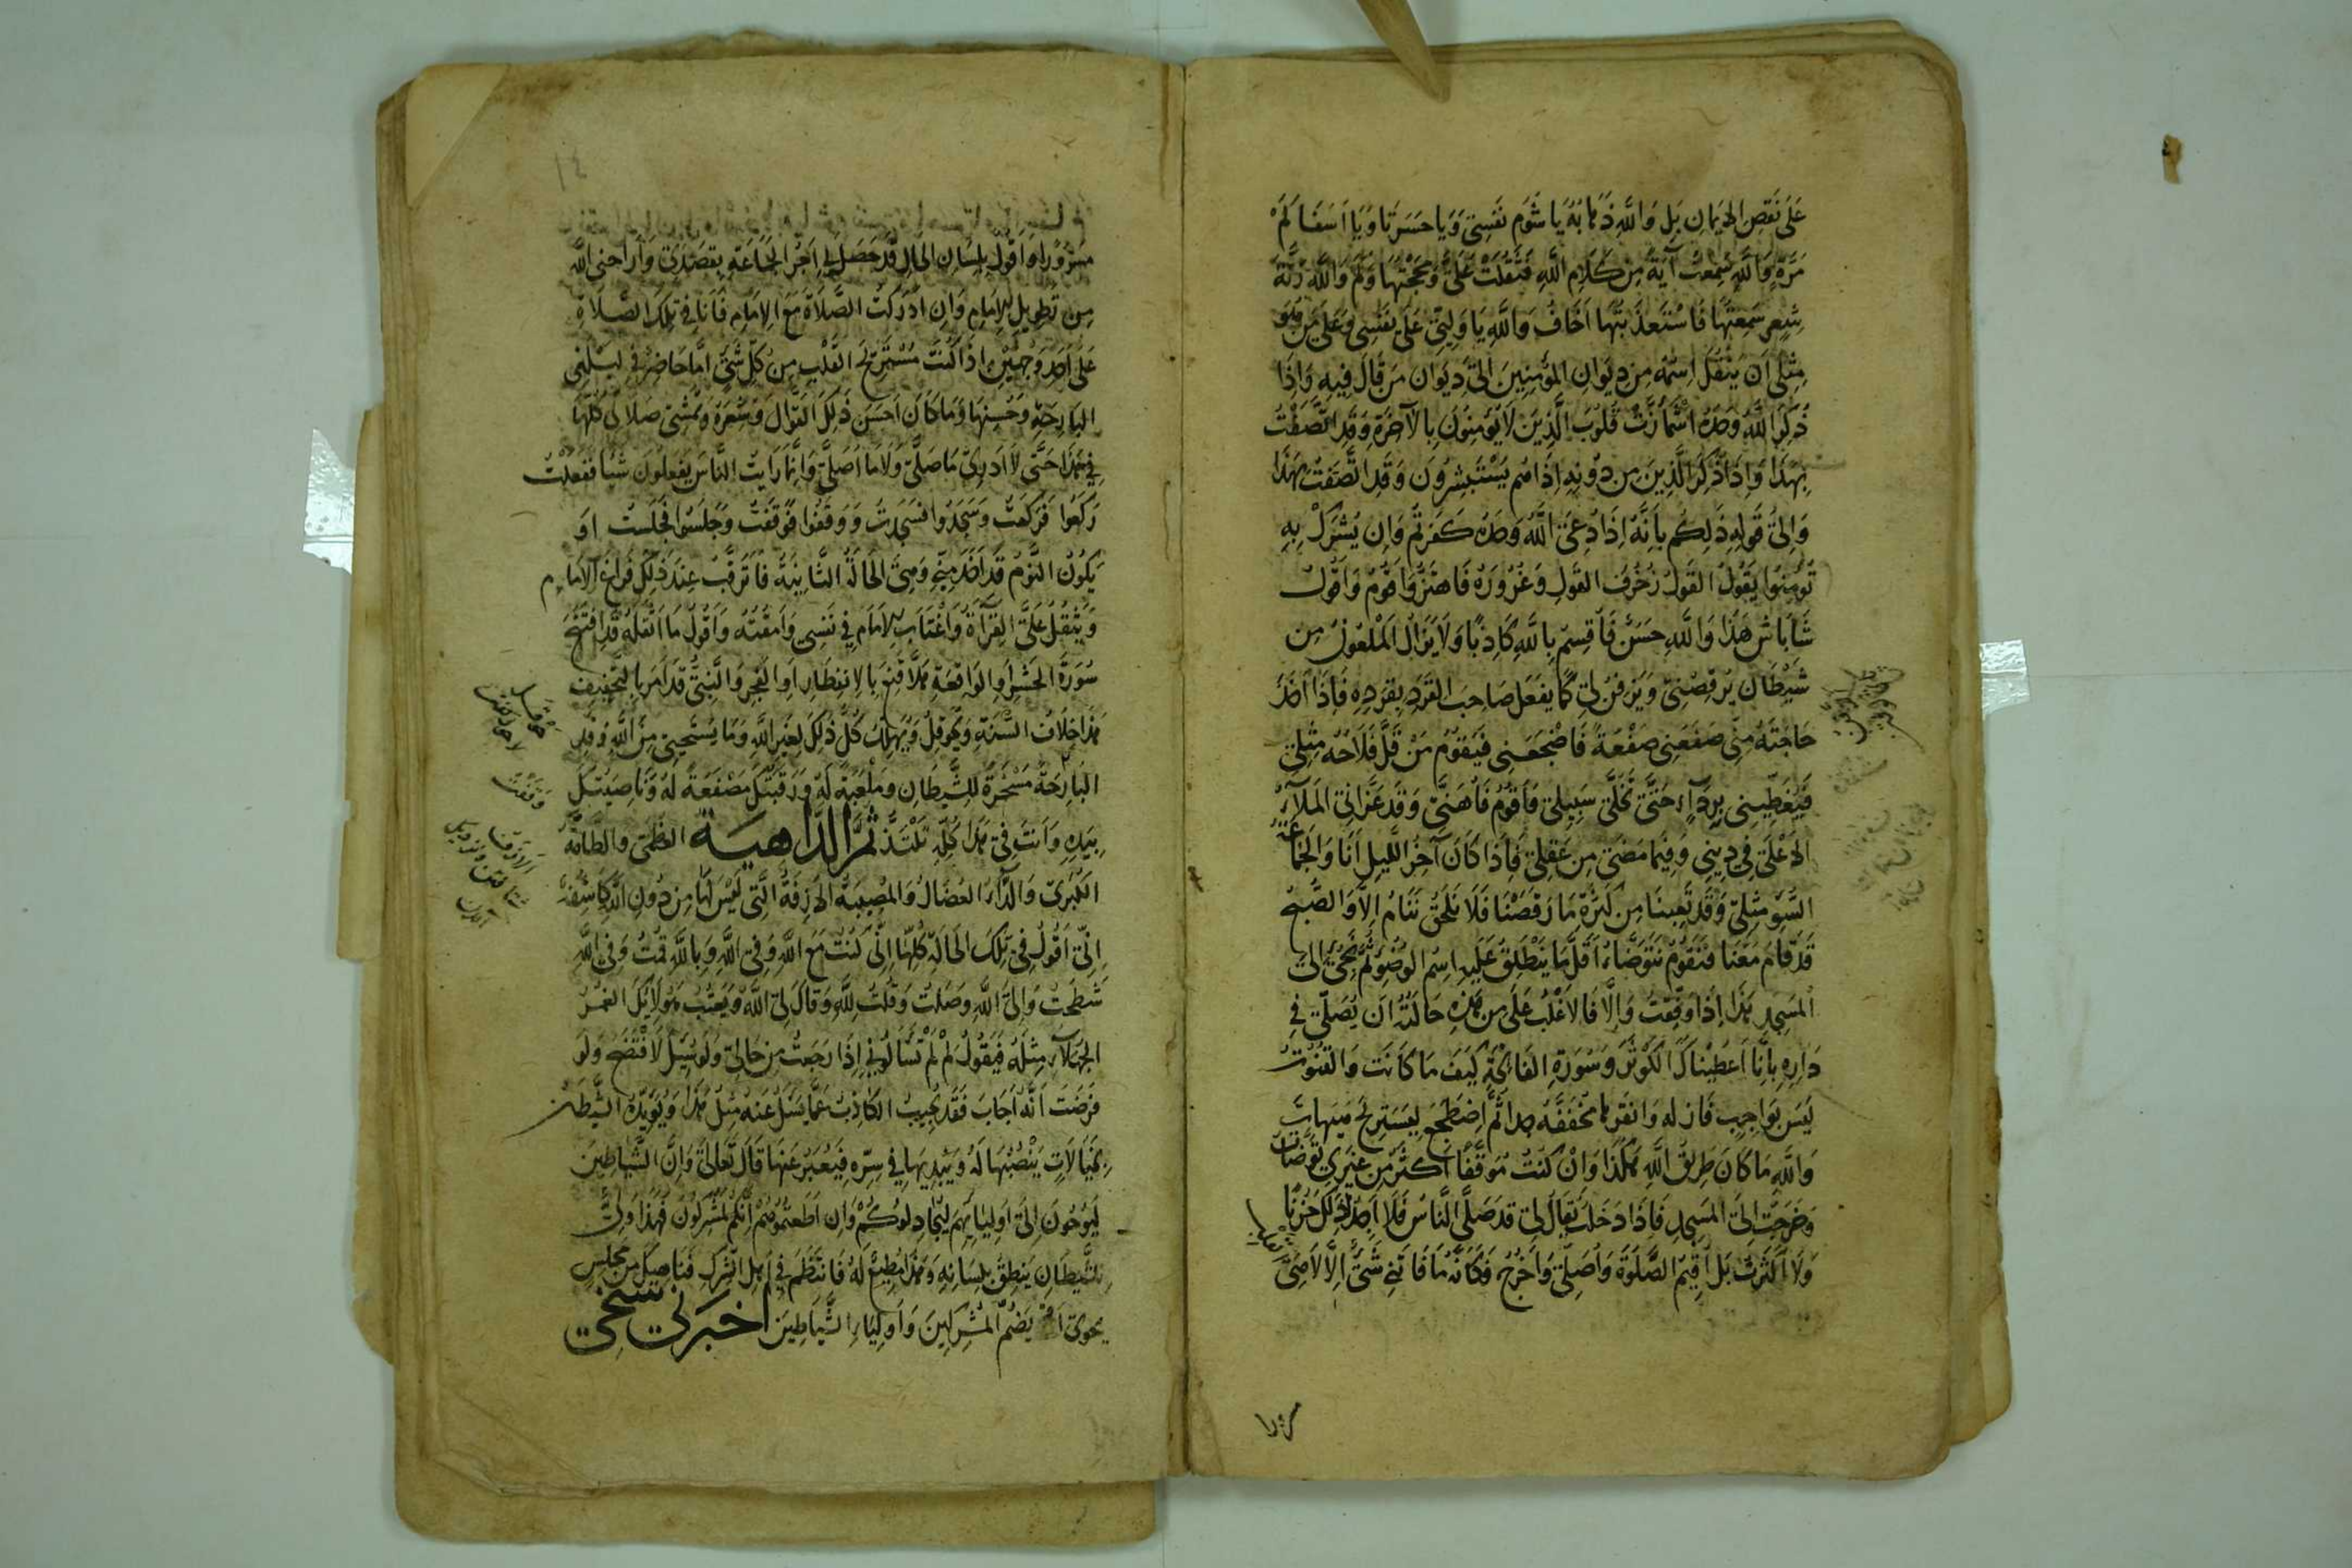 عَلَى نَقْصِ الإِيمَانِ بَلْ وَاللَّهِ ذَهَابُهُ يَا شُومَ نَفْسِي وَيَا حَسْرَتَا وَيَا أَسَفَا كَمْ
مَرَّةٍ وَاللَّهِ سَمِعْتُ آيَةً مِنْ كَلَامِ اللَّهِ فَثَقُلَتْ عَلَيَّ وَمَجَجْتُهَا وَكَمْ وَاللَّهِ رَنَّةَ
شِعْرٍ سَمِعْتُهَا فَاسْتَعْذَبْتُهَا أَخَافُ وَاللَّهِ يَا وَلِيِّي عَلَى نَفْسِي وَعَلَى مَنْ هُوَ
مِثْلِي أَنْ يُنْقَلَ اِسْمُهُ مِنْ دِيوَانِ المُؤْمِنِينَ إِلَى دِيوَانِ مَنْ قَالَ فِيهِ وَإِذَا
ذُكِرَ اللَّهُ وَحْدَهُ اشْمَأَزَّتْ قُلُوبُ الَّذِينَ لَا يُؤْمِنُونَ بِالْآخِرَةِ وَقَدِ اتَّصَفْتُ
بِهَذَا وَإِذَا ذُكِرَ الَّذِينَ مِنْ دُونِهِ إِذَا هُمْ يَسْتَبْشِرُونَ وَقَدِ اتَّصَفْتُ بِهَذَا
وَإِلَى قَوْلِهِ ذَلِكُمْ بِأَنَّهُ إِذَا دُعِيَ اللَّهُ وَحْدَهُ كَفَرْتُمْ وَإِنْ يُشْرَكْ بِهِ
تُؤْمِنُوا يَقُولُ القَوَّالُ زُخْرُفَ القَوْلِ وَغُرُورَهُ فَأَهْتَزُّ وَأَقُومُ وَأَقُولُ
شَابَاش هَذَا وَاللَّهِ حَسَنٌ فَأُقْسِمُ بِاللَّهِ كَاذِبًا وَلَا يَزَالُ المَلْعُونُ مِنْ
شَيْطَانٍ يُرْقِصُنِي وَيَزْفِنُ لِي كَمَا يَفْعَلُ صَاحِبُ القِرْدِ بِقِرْدِهِ فَإِذَا أَخَذَ
حَاجَتَهُ مِنِّي صَفَعَنِي صَفْعَةً فَأَضْجَعَنِي فَيَقُومُ مَنْ قَلَّ فَلَاحُهُ مِثْلِي
فَيُغَطِّينِي بِرِدَاءٍ حَتَّى تُخَلَّى سَبِيلِي فَأَقُومُ فَأُهَنَّى وَقَدْ عَزَّانِي المَلَأُ
الأَعْلَى فِي دِينِي وَفِيمَا مَضَى مِنْ عَقْلِي فَإِذَا كَانَ آخِرُ اللَّيْلِ أَنَا وَالجَمَاعَةُ
السَّوْءِ مِثْلِي وَقَدْ تَعِبْنَا مِنْ كَثْرَةِ مَا رَقَصْنَا فَلَا نَلْحَقُ نَنَامُ إِلَّا وَالصُّبْحُ
قَدْ قَامَ مَعَنَا فَنَقُومُ نَتَوَضَّأُ أَقَلَّ مَا يَنْطَلِقُ عَلَيْهِ اِسْمُ الوُضُوءِ ثُمَّ نَجِيءُ إِلَى
المَسْجِدِ هَذَا إِذَا وُفِّقْتُ وَإِلَّا فَالأَغْلَبُ عَلَى مَنْ هَذِهِ حَالَتُهُ أَنْ يُصَلِّيَ فِي
دَارِهِ بِإِنَّا أَعْطَيْنَاكَ الكَوْثَرَ وَسُورَةِ الفَاتِحَةِ كَيْفَ مَا كَانَتْ وَالقُنُوتُ
لَيْسَ بِوَاجِبٍ ثُمَّ اضْطَجِعْ لِيَسْتَرِيحَ هَيْهَاتَ
وَاللَّهِ مَا كَانَ طَرِيقُ اللَّهِ هَكَذَا وَإِنْ كُنْتُ مُوَفَّقًا أَكْثَرَ مِنْ غَيْرِي تَوَضَّأْتُ
وَخَرَجْتُ إِلَى المَسْجِدِ فَإِذَا دَخَلْتُ يُقَالُ لِي قَدْ صَلَّى النَّاسُ فَلَا أَجِدُ لِذَلِكَ حُزْنًا
وَلَا أَكْتَرِثُ بَلْ أُقِيمُ الصَّلَوةَ وَأُصَلِّي وَأَخْرُجُ فَكَأَنَّهُ مَا فَاتَنِي شَيْءٌ إِلَّا لَا
مَسْرُورًا وَأَقُولُ بِلِسَانِ الحَالِ قَدْ حَصَلَ لِي أَجْرُ الجَمَاعَةِ بِقَصْدِي وَأَرَاحَنِي اللَّهُ
مِنْ تَطْوِيلِ الإِمَامِ وَإِنْ أَدْرَكْتُ الصَّلَاةَ مَعَ الإِمَامِ فَأَنَا فِي تِلْكَ الصَّلَاةِ
عَلَى أَحَدِ وَجْهَيْنِ إِذَا كُنْتُ مُسْتَرِيحَ القَلْبِ مِنْ كُلِّ شَيْءٍ إِمَّا حَاضِرٌ فِي لَيْلَتِي
البَارِحَةِ وَحُسْنِهَا وَمَا كَانَ أَحْسَنَ ذَلِكَ القَوَّالَ وَشِعْرَهُ وَتَمْشِي صَلَاتِي كُلُّهَا
فِي هَذَا حَتَّى لَا أَدْرِي مَا صَلَّى وَلَا مَا أُصَلِّي وَإِنَّمَا رَأَيْتُ النَّاسَ يَفْعَلُونَ شَيْئًا فَفَعَلْتُ
رَكَعُوا فَرَكَعْتُ وَسَجَدُوا فَسَجَدْتُ وَوَقَفُوا فَوَقَفْتُ وَجَلَسُوا فَجَلَسْتُ أَوْ
يَكُونُ النَّوْمُ قَدْ أَخَذَ مِنِّي وَهِيَ الحَالَةُ الثَّانِيَةُ فَأَتَرَقَّبُ عِنْدَ ذَلِكَ فَرَاغَ الإِمَامِ
وَيَثْقُلُ عَلَيَّ القِرَاءَةُ وَأَغْتَابُ الإِمَامَ فِي نَفْسِي وَأَمْقُتُهُ وَأَقُولُ مَا أَثْقَلَهُ قَدِ افْتَتَحَ
سُورَةَ الحَشْرِ أَوِ الوَاقِعَةِ هَلَّا قَنِعَ بِالِانْفِطَارِ أَوِ الفَجْرِ وَالنَّبِيُّ قَدْ أَمَرَ بِالتَّخْفِيفِ
هَذَا خِلَافُ السُّنَّةِ وَيُحَوْقِلُ وَيُهْلِكُ كُلَّ ذَلِكَ لِغَيْرِ اللَّهِ وَمَا يَسْتَحْيِي مِنَ اللَّهِ وَقَدْ
البَارِحَةَ مَسْخَرَةً لِلشَّيْطَانِ وَمَلْعَبَةً لَهُ وَرَقَبَتُكَ مَصْفَعَةً لَهُ وَنَاصِيَتُكَ
بِيَدِهِ وَأَنْتَ فِي هَذَا كُلِّهِ تَلْتَذُّ ثُمَّ الدَّاهِيَةُ العُظْمَى وَالطَّامَّةُ
الكُبْرَى وَالدَّاءُ العُضَالُ وَالمُصِيبَةُ الآزِفَةُ الَّتِي لَيْسَ لَهَا مِنْ دُونِ اللَّهِ كَاشِفَةٌ
إِنِّي أَقُولُ فِي تِلْكَ الحَالَةِ كُلِّهَا إِنِّي كُنْتُ مَعَ اللَّهِ وَفِي اللَّهِ وَبِاللَّهِ قُمْتُ وَفِي اللَّهِ
شَطَحْتُ وَإِلَى اللَّهِ وَصَلْتُ وَقُلْتُ لِلَّهِ وَقَالَ لِيَ اللَّهُ
الجُهَلَاءُ مِثْلُهُ فَيَقُولُ لِمَ لَمْ تَسْأَلُونِي إِذَا رَجَعْتُ مِنْ حَالِي وَلَوْ سُئِلَ لَافْتَضَحَ وَلَوْ
فَرَضْتَ أَنَّهُ أَجَابَ فَقَدْ يُجِيبُ الكَاذِبُ عَمَّا يُسْئَلُ عَنْهُ مِثْلَ هَذَا وَيُؤَيِّدُهُ الشَّيْطَانُ
بِخَيَالَاتٍ يَنْصُبُهَا لَهُ وَيُبْدِيهَا فِي سِرِّهِ فَيُعَبِّرُ عَنْهَا قَالَ تَعَالَى وَإِنَّ الشَّيَاطِينَ
لَيُوحُونَ إِلَى أَوْلِيَائِهِمْ لِيُجَادِلُوكُمْ وَإِنْ أَطَعْتُمُوهُمْ إِنَّكُمْ لَمُشْرِكُونَ فَهَذَا وَلِيُّ
الشَّيْطَانِ يَنْطِقُ بِلِسَانِهِ وَهَذَا مُطِيعٌ لَهُ فَانْتَظَمَ فِي أَهْلِ الشِّرْكِ فَنَاهِيكَ مِنْ مَجْلِسٍ
يَحْوِي يَضُمُّ المُشْرِكِينَ وَأَوْلِيَاءَ الشَّيَاطِينِ أَخْبَرَنِي شَيْخِي